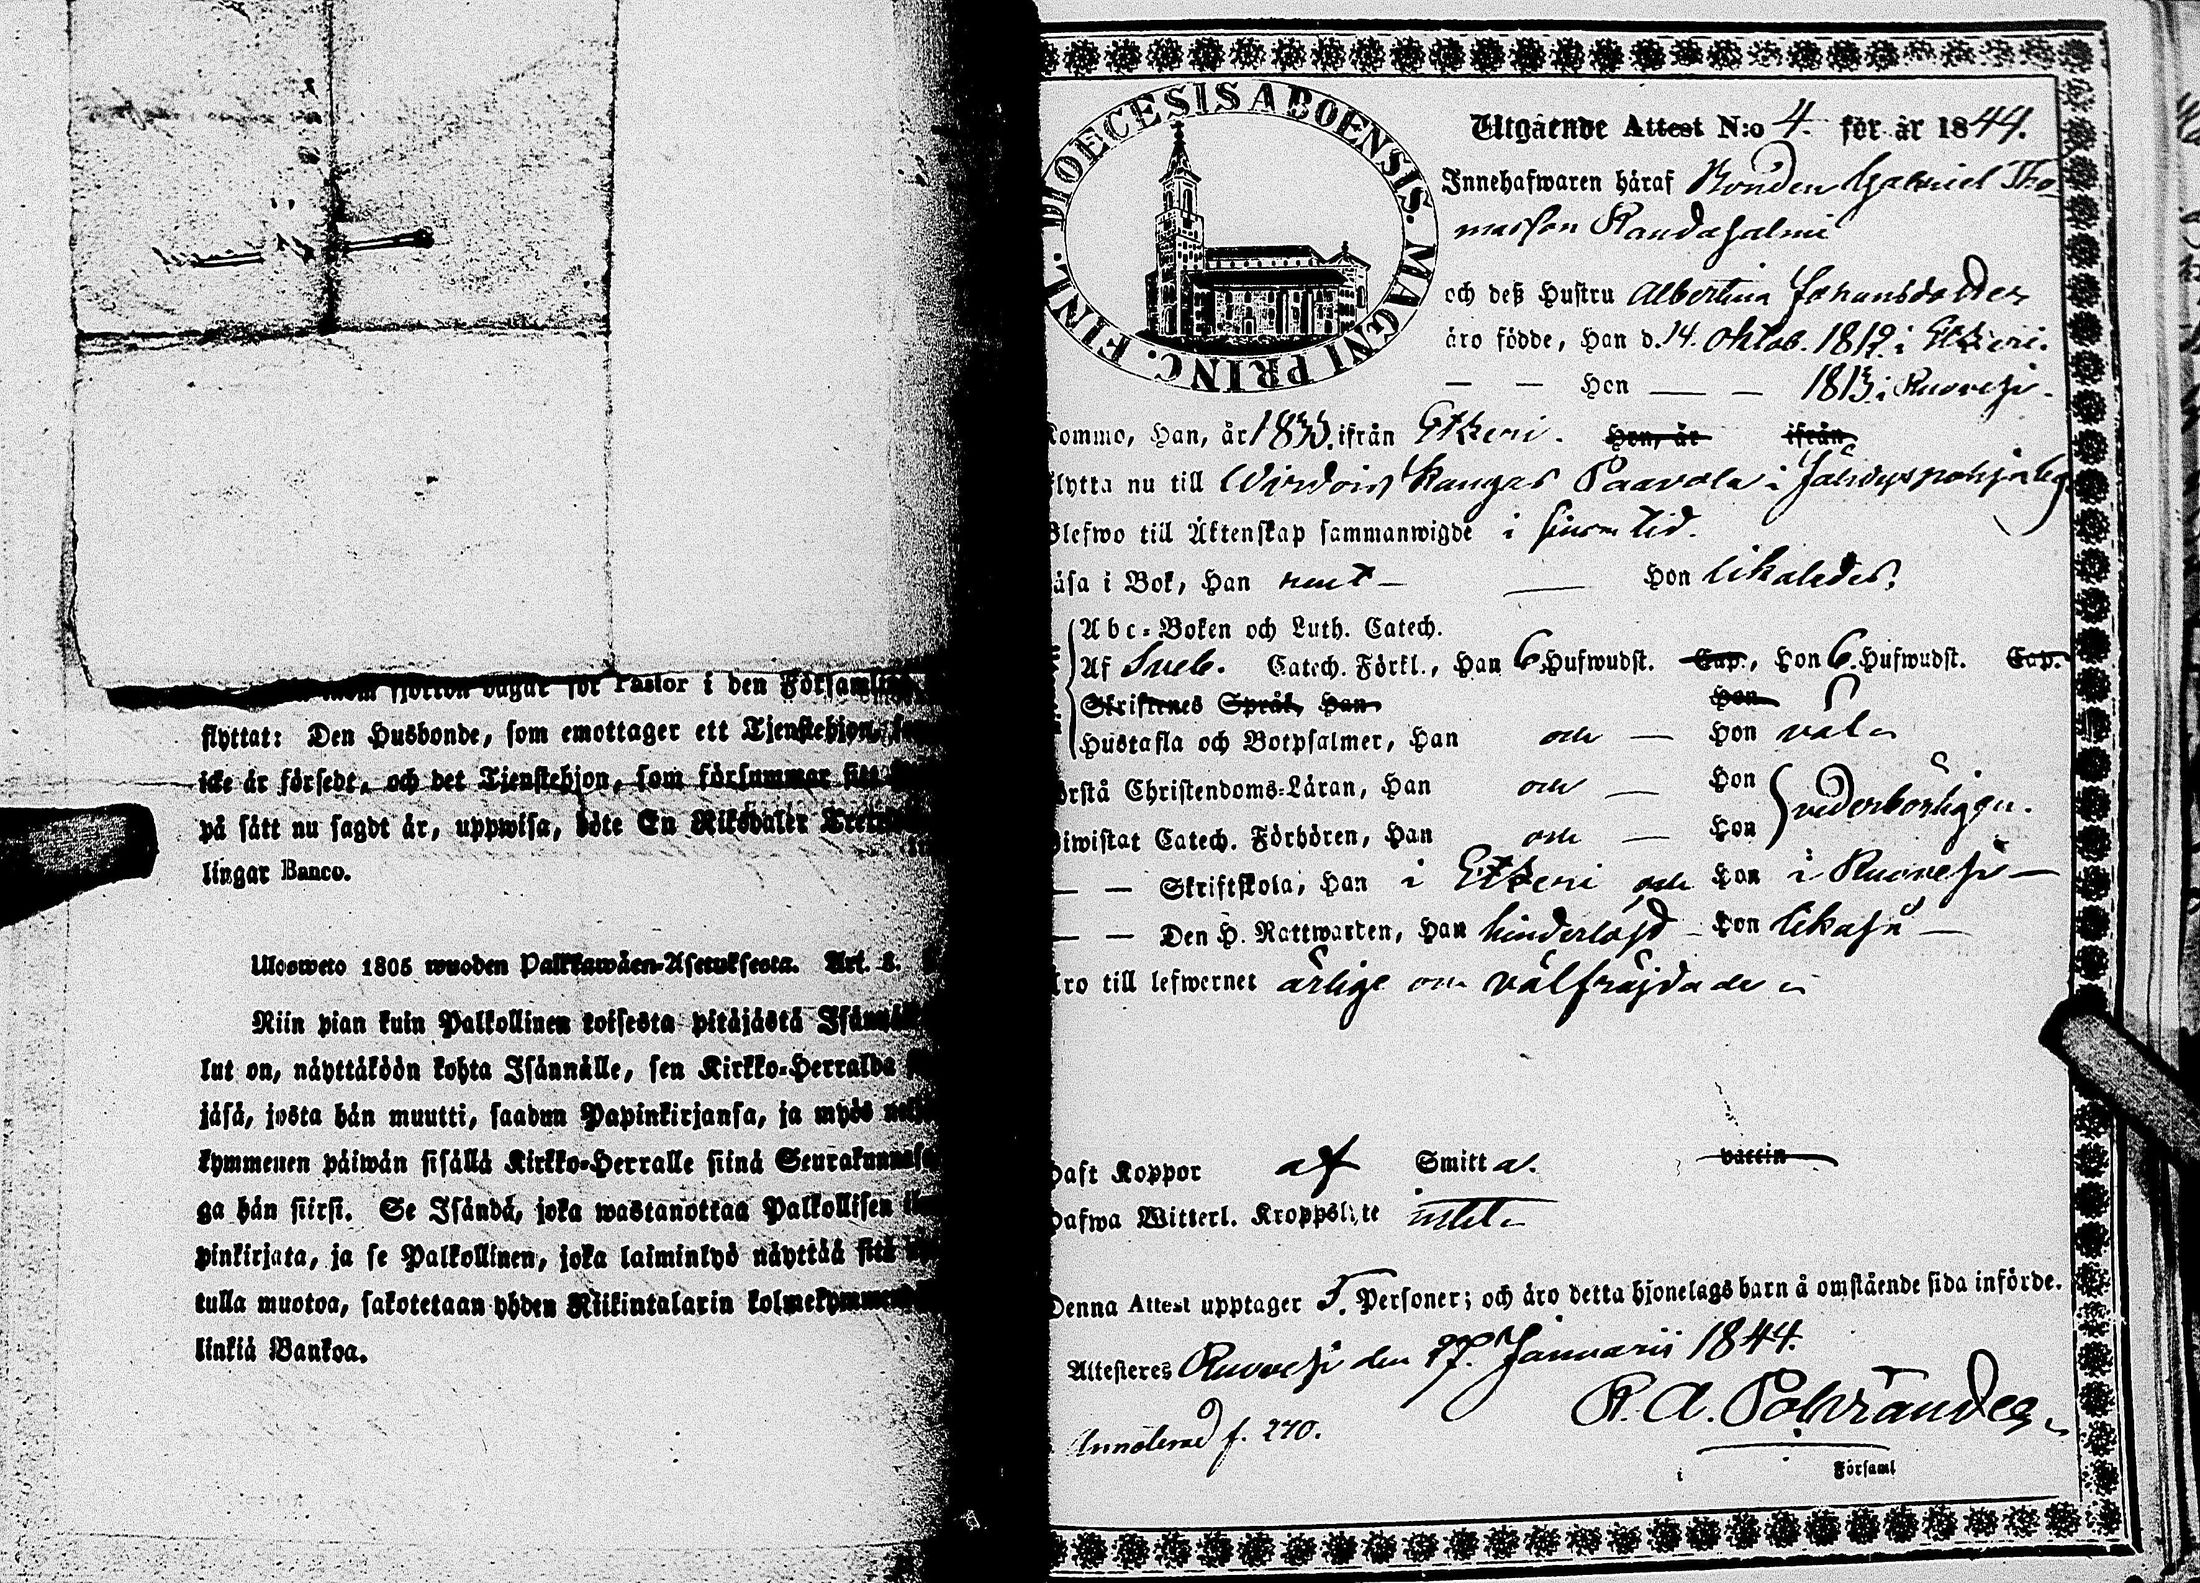 Pastor i den Församling
flyttat: Den Husbonde, som emottager ett Tjenstehjon,
icke är försedt, och det Tjenstehjon, som försummar sitt
på sätt nu sagdt är, uppwisa, böte En Riksdaler
lingar Banco.
Ulosweto 1805 wuoden Palkkawäen-Asetuksesta. Art. 8.
Niin pian kuin Palkollinen toisesta pitäjästä
lut on, näyttäköön kohta Isännälle, sen Kirkko-Herralda
jäsä, josta hän muutti, saadun Papinkirjansa, ja myös
kymmenen päiwän sisällä Kirkko-Herralle siinä
ga hän siirsi. Se Isändä, joka wastanottaa Palkollisen
pinkirjata, ja se Palkollinen, joka laiminlyö näyttää sitä
tulla muotoa, sakotetaan yhden Riikintalarin
linkiä Bankoa.
DIOECESIS ABOENSIS. MAGNI PRINC. FINL.
Utgående Attest N:o 4. för år 1844.
Innehafwaren häraf Bonden Gabriel Tho-
masson Raudasalmi
och deß Hustru Albertina Johansdotter
äro födde, Han d. 14. Oktob. 1812 i Etseri.
— — Hon — — 1813 i Ruovesi.
Kommo, Han, år 1833. ifrån Etseri. Hon, år ifrån
flytta nu till Wirdois Kangas Paavola i
Blefwo till Äktenskap sammanwigde i sinom tid.
läsa i Bok, Han rent — — Hon likaledes.
Abc-Boken och Luth. Catech.
Af Sveb. Catech. Förkl., Han 6 Hufwudst. Cap., Hon 6. Hufwudst. Cap.
Skriftenes Språk, Han Hon
Hustafla och Botpsalmer, Han och — Hon väl
Förstå Christendoms-Läran, Han och — Hon
Biwistat Catech. Förhören, Han och — Hon vederbörligen.
— — Skriftskola, Han i Etseri och Hon i Ruovesi —
— — Den H. Nattwarden, Han hinderlöst — Hon likaså —
äro till lefwernet ärlige och välfräjdade
Haft Koppor af Smitta. vaccin
Hafwa Witterl. Kroppslyte intet
Denna Attest upptager 5. Personer; och äro detta hjonelags barn å omstående sida införde.
Attesteres Ruovesi den 17. Januarii 1844.
Annoterad f. 270.
Församl